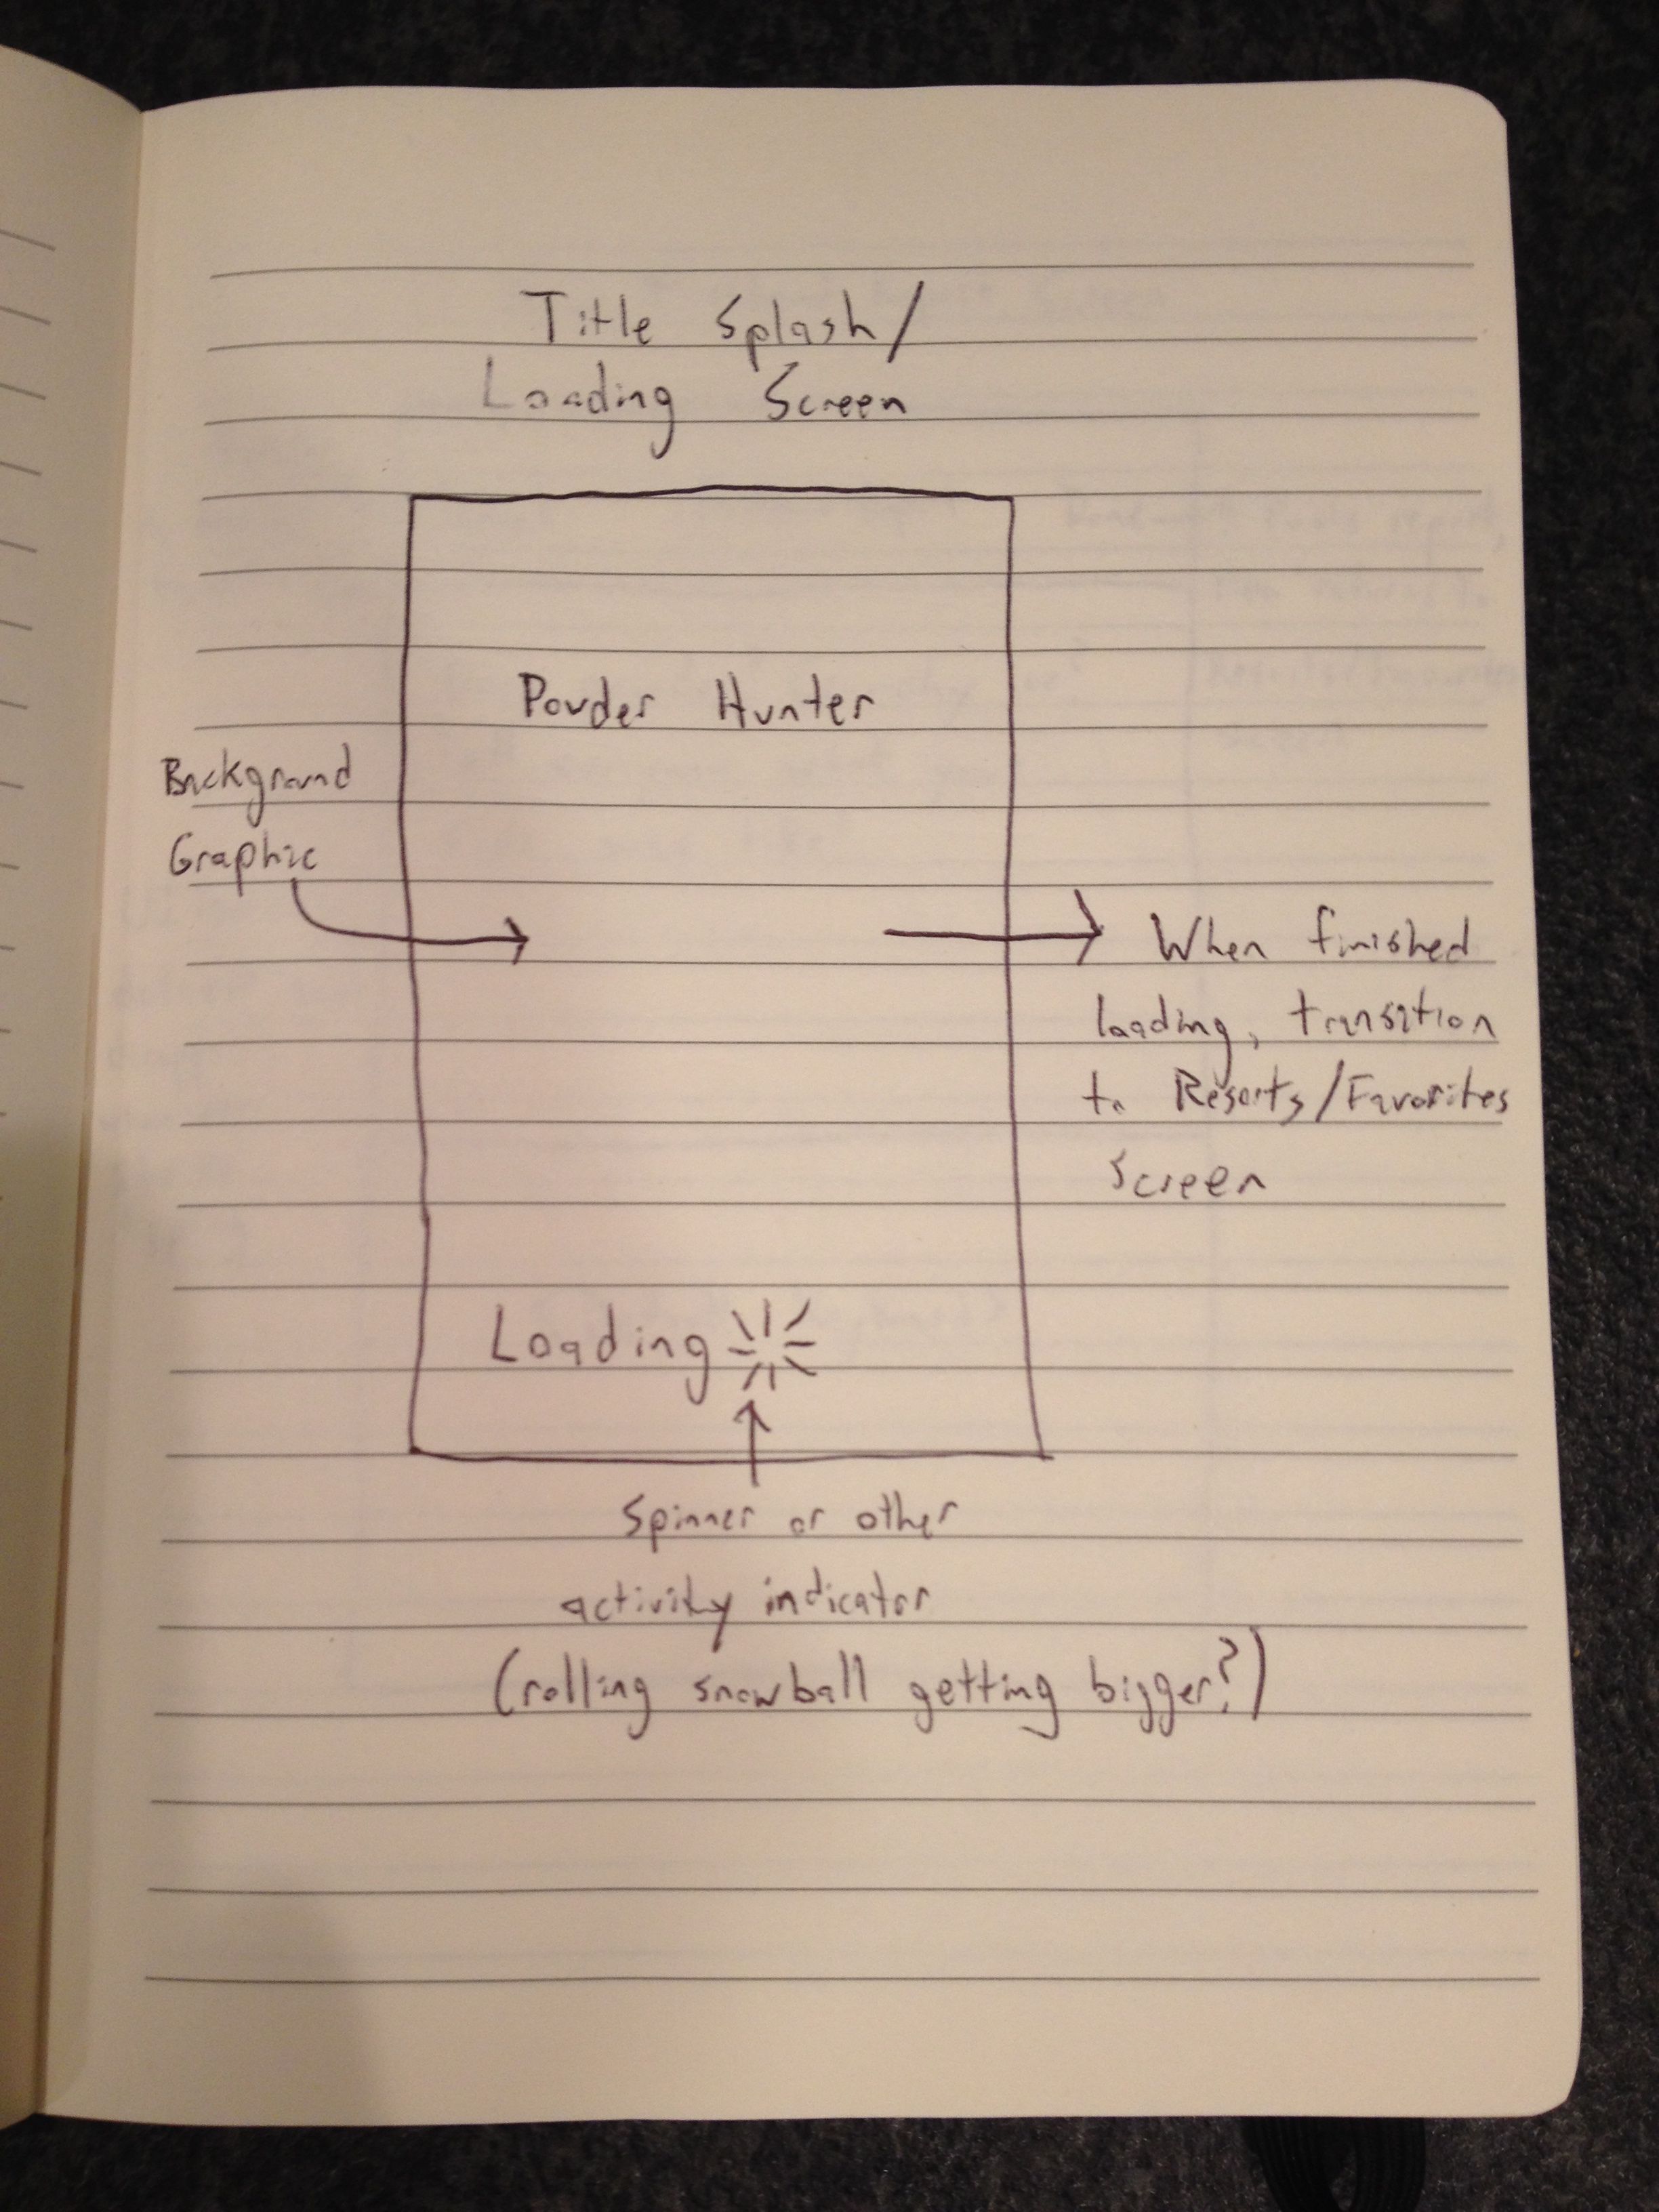 Title Splash/
Loading Screen
Powder Hunter
Background
Graphic
When finished
loading, transition
to Resorts/Favorites
Screen
Loading
Spinner or other
activity indicator
(rolling snowball getting bigger?)